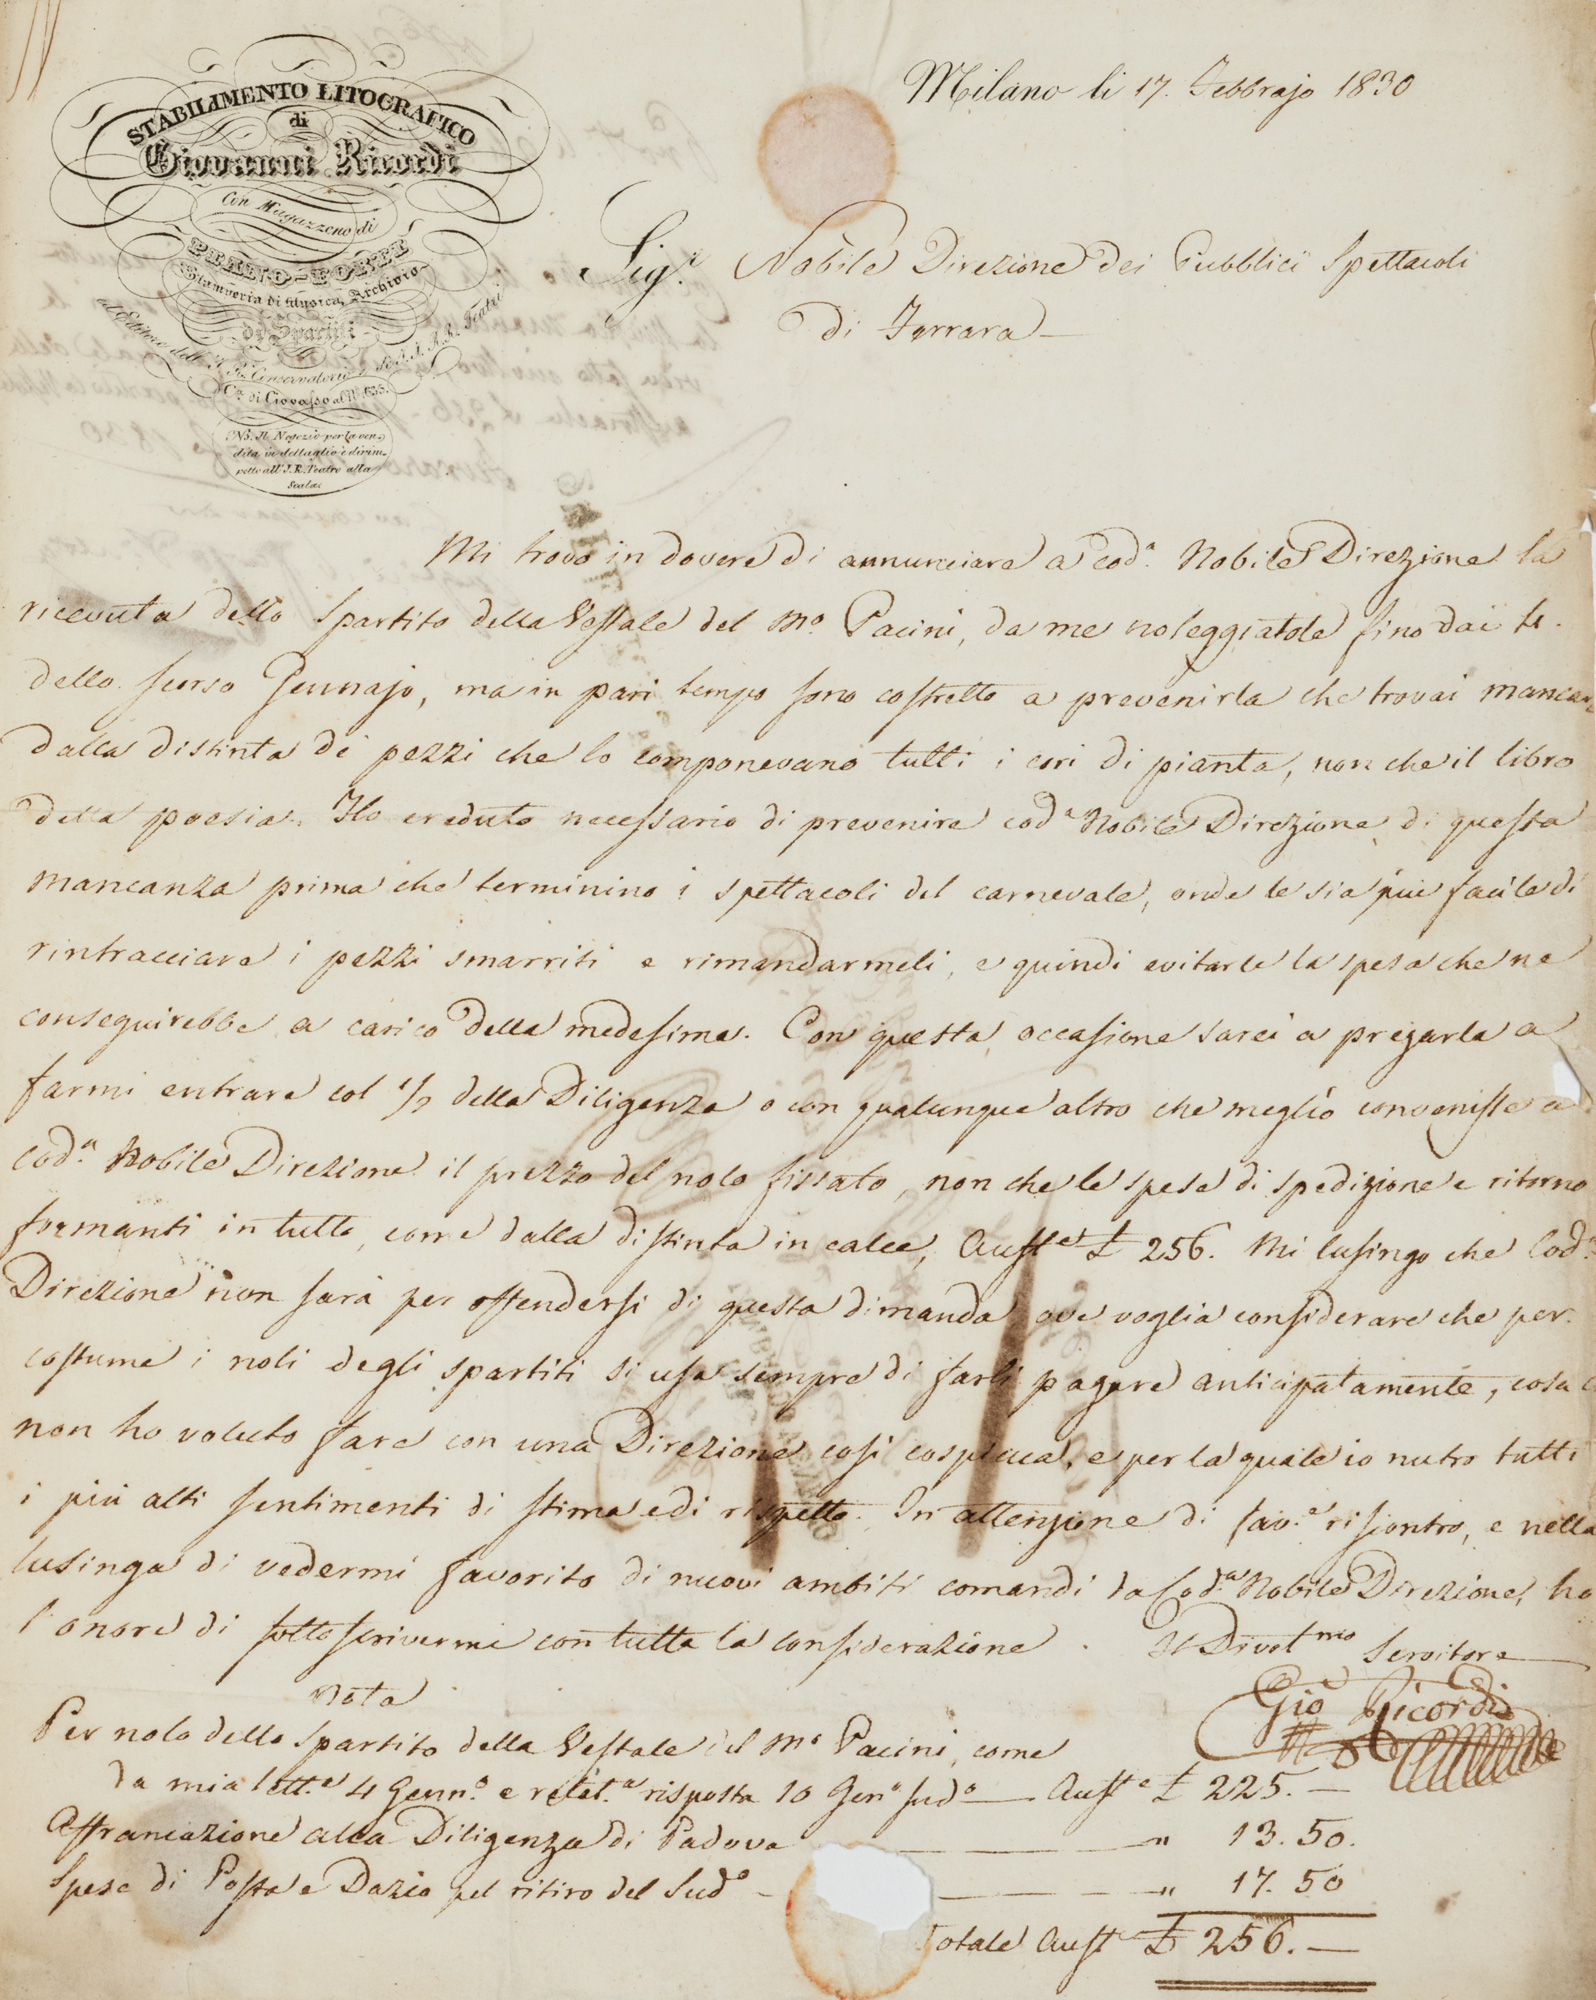 STABILIMENTO LITOGRAFICO
di
Giovanni Ricordi
Con Magazzeno di
PIANO-FORTI
Stamperia di Musica, Archivio
di Spartiti
ed Editore dell' I. R. Conservatorio e R. I. I. R. R. Teatri
Cª. di Ciovasso al Nº. 635.
NB. Il Negozio per la ven-
dita in dettaglio è dirim-
petto all' I. R. Teatro alla
Scala.
Milano li 17. Febbrajo 1830
Sigʳ. Nobile Direzione dei Pubblici Spettacoli
di Ferrara
Mi trovo in dovere di annunciare a cod.ª Nobile Direzione la
ricevuta dello Spartito della Vestale del Mº. Pacini, da me noleggiatole fino dai 4.
dello scorso Gennajo, ma in pari tempo sono costretto a prevenirla che trovai mancare
dalla distinta de' pezzi che lo componevano tutti i cori di pianta, non che il libro
della poesia. Ho creduto necessario di prevenire cod.ª Nobile Direzione di questa
mancanza prima che terminino i spettacoli del carnevale, onde le sia più facile di
rintracciare i pezzi smarriti e rimandarmeli, e quindi evitarle la spesa che ne
conseguirebbe a carico della medesima. Con questa occasione sarei a pregarla a
farmi entrare col 1/2 della Diligenza o con qualunque altro che meglio convenisse a
cod.ª Nobile Direzione il prezzo del nolo fissato, non che le spese di spedizione e ritorno
formanti in tutto, come dalla distinta in calce, Austᵉ £ 256. Mi lusingo che Cod.ª
Direzione non sarà per offendersi di questa dimanda ove voglia considerare che per
costume i noli degli spartiti si usa sempre di farli pagare anticipatamente, cosa c
non ho voluto fare con una Direzione così cospicua, e per la quale io nutro tutti
i più alti sentimenti di stima e di rispetto. In attenzione di fav.ᵉ riscontro, e nella
lusinga di vedermi favorito di nuovi ambiti comandi da Cod.ª Nobile Direzione, ho
l'onore di sottoscrivermi con tutta la considerazione. Il Divotᵐᵒ Servitore
Giò Ricordi
Nota
Per nolo dello Spartito della Vestale del Mº Pacini, come
da mia lett.ª 4 Genn.º e relat.ª risposta 10 Genº sudº — Austᵉ £ 225. —
Affrancazione alla Diligenza di Padova — " 13. 50.
Spese di Posta e Dazio pel ritiro del Sudº — " 17. 50
Totale Austᵉ £ 256. —